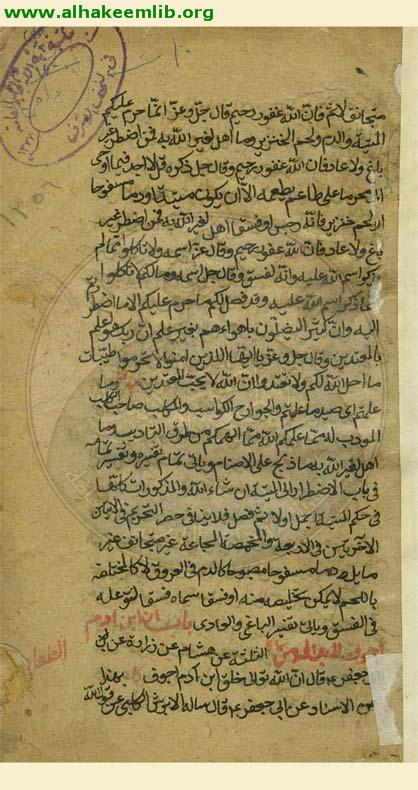 www.alhakeemlib.org
متجانف لاثم فان الله غفور رحيم قال جل وعز انما حرم عليكم
الميتة والدم ولحم الخنزير وما اهل لغير الله به فمن اضطر غير
باغ ولا عاد فان الله غفور رحيم وقال جل ذكره قل لا اجد فيما اوحى
الى محرما على طاعم يطعمه الا ان يكون ميتة او دما مسفوحا
او لحم خنزير فانه رجس او فسقا اهل لغير الله به فمن اضطر غير
باغ ولا عاد فان الله غفور رحيم وقال عز اسمه ولا تاكلوا مما لم
يذكر اسم الله عليه وانه لفسق وقال جل اسمه وما لكم الا تاكلوا
مما ذكر اسم الله عليه وقد فصل لكم ما حرم عليكم الا ما اضطررتم
اليه وان كثيرا ليضلون باهوائهم بغير علم ان ربك هو اعلم
بالمعتدين وقال جل وعز يا ايها الذين امنوا لا تحرموا طيبات
ما احل الله لكم ولا تعتدوا ان الله لا يحب المعتدين وما
علمتم اى صيد ما علمتم والجوارح الكواسب والمكلب صاحب الكلب
المودب له مما علمكم الله مما الهمكم من طرق التاديب وما
اهل لغير الله به ما ذبح على الاصنام وياتى تمام تفسيره وتفسير
فى باب الاضطرار الى الميتة ان شاء الله والمذكورات كلها
فى حكم الميتة
الاخريين فى الاربعة والمخمصة المجاعة غير متجانف غير
مايل دما مسفوحا مصبوبا كالدم فى العروق لا كالمختلط
باللحم لا يمكن تخليصه منه او فسقا سماه فسقا
فى الفسق وياتى تفسير الباغى والعادى باب ان ابن ادم
اجوف لا بد له من الطعام الثلثة عن هشام عن زرارة عن ابى
جعفر ع قال ان الله تعالى خلق ابن ادم اجوف كا بهذا
الاسناد عن ابى جعفر ع قال ساله الابرش الكلبى عن قول الله